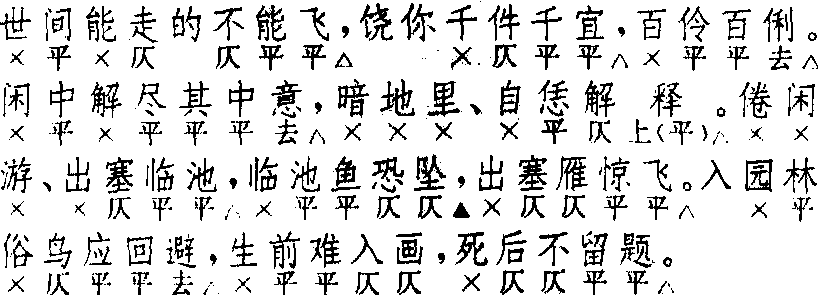 世间能走的不能飞，饶你千件千宜，百伶百俐。
×平×仄 仄平平△ ×仄平平△×平平去△
闲中解尽其中意，暗地里、自恁解释。倦闲
×平×平平平去△××× ×平仄上(平)△××
游、出塞临池，临池鱼恐坠，出塞雁惊飞。入园林
× ×仄平平△×平平仄仄▲×仄仄平平△ ×平
俗鸟应回避，生前难入画，死后不留题。
×仄平平去△×平平仄仄 ×仄仄平平△